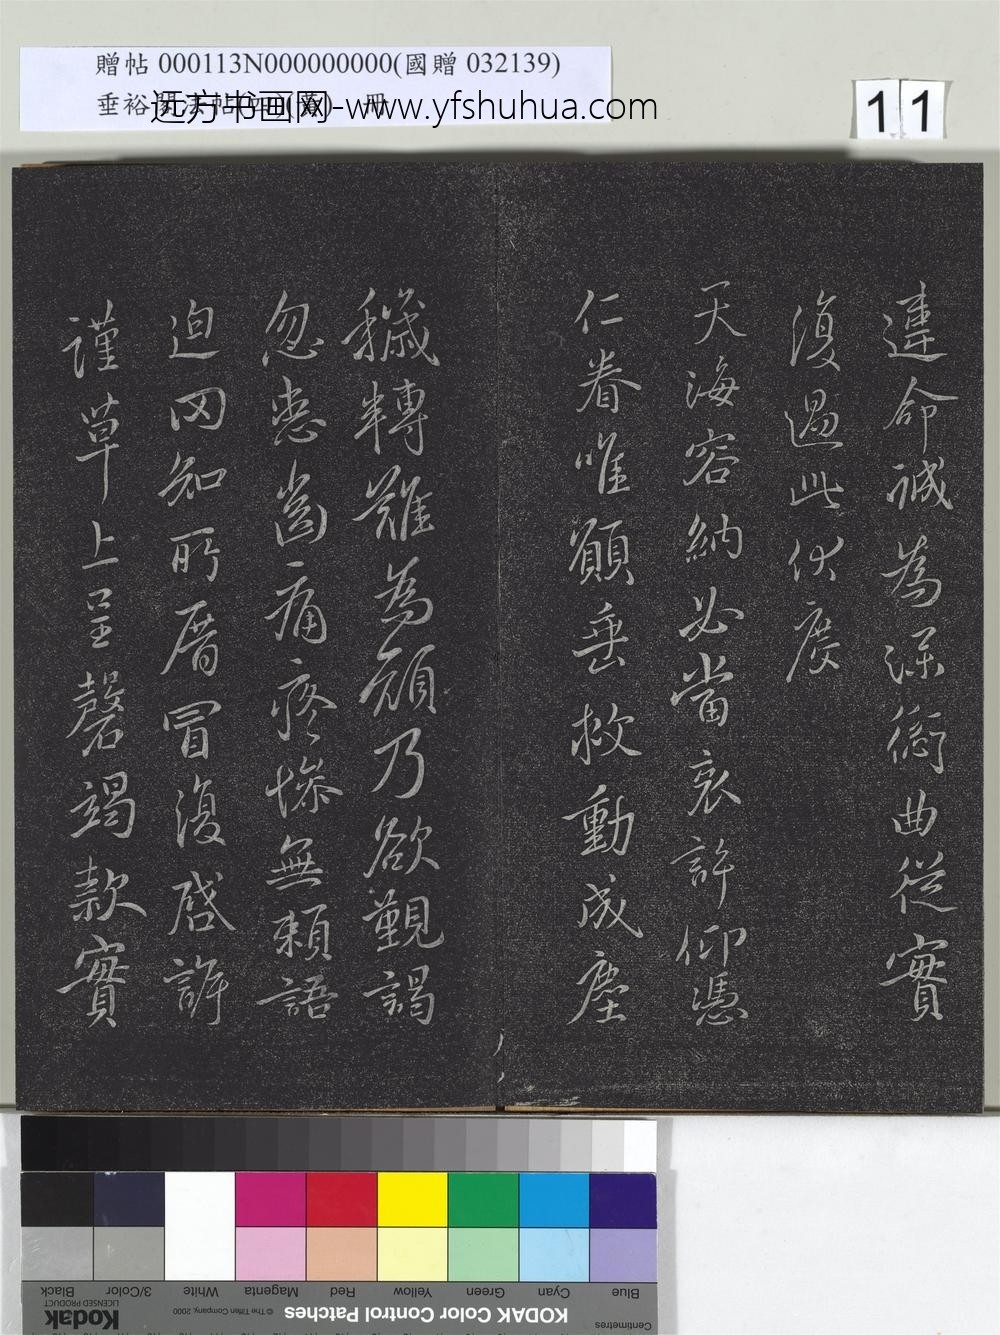 贈帖 000113N000000000(國贈 032139)
垂裕閣法帖四(貳) 冊
远方书画网-www.yfshuhua.com
11
違命誠為深銜曲從實
復過此伏度
天海容納必當哀許仰憑
仁眷唯願垂救動成塵
穢轉難為顏乃欲覲謁
忽患齒痛疼慘無賴語
迫罔知所厝冒復啓訴
謹草上呈罄竭款實
KODAK Color Control Patches
Kodak
LICENSED PRODUCT
© The Tiffen Company, 2000
Blue Cyan Green Yellow Red Magenta White 3/Color Black
Centimetres